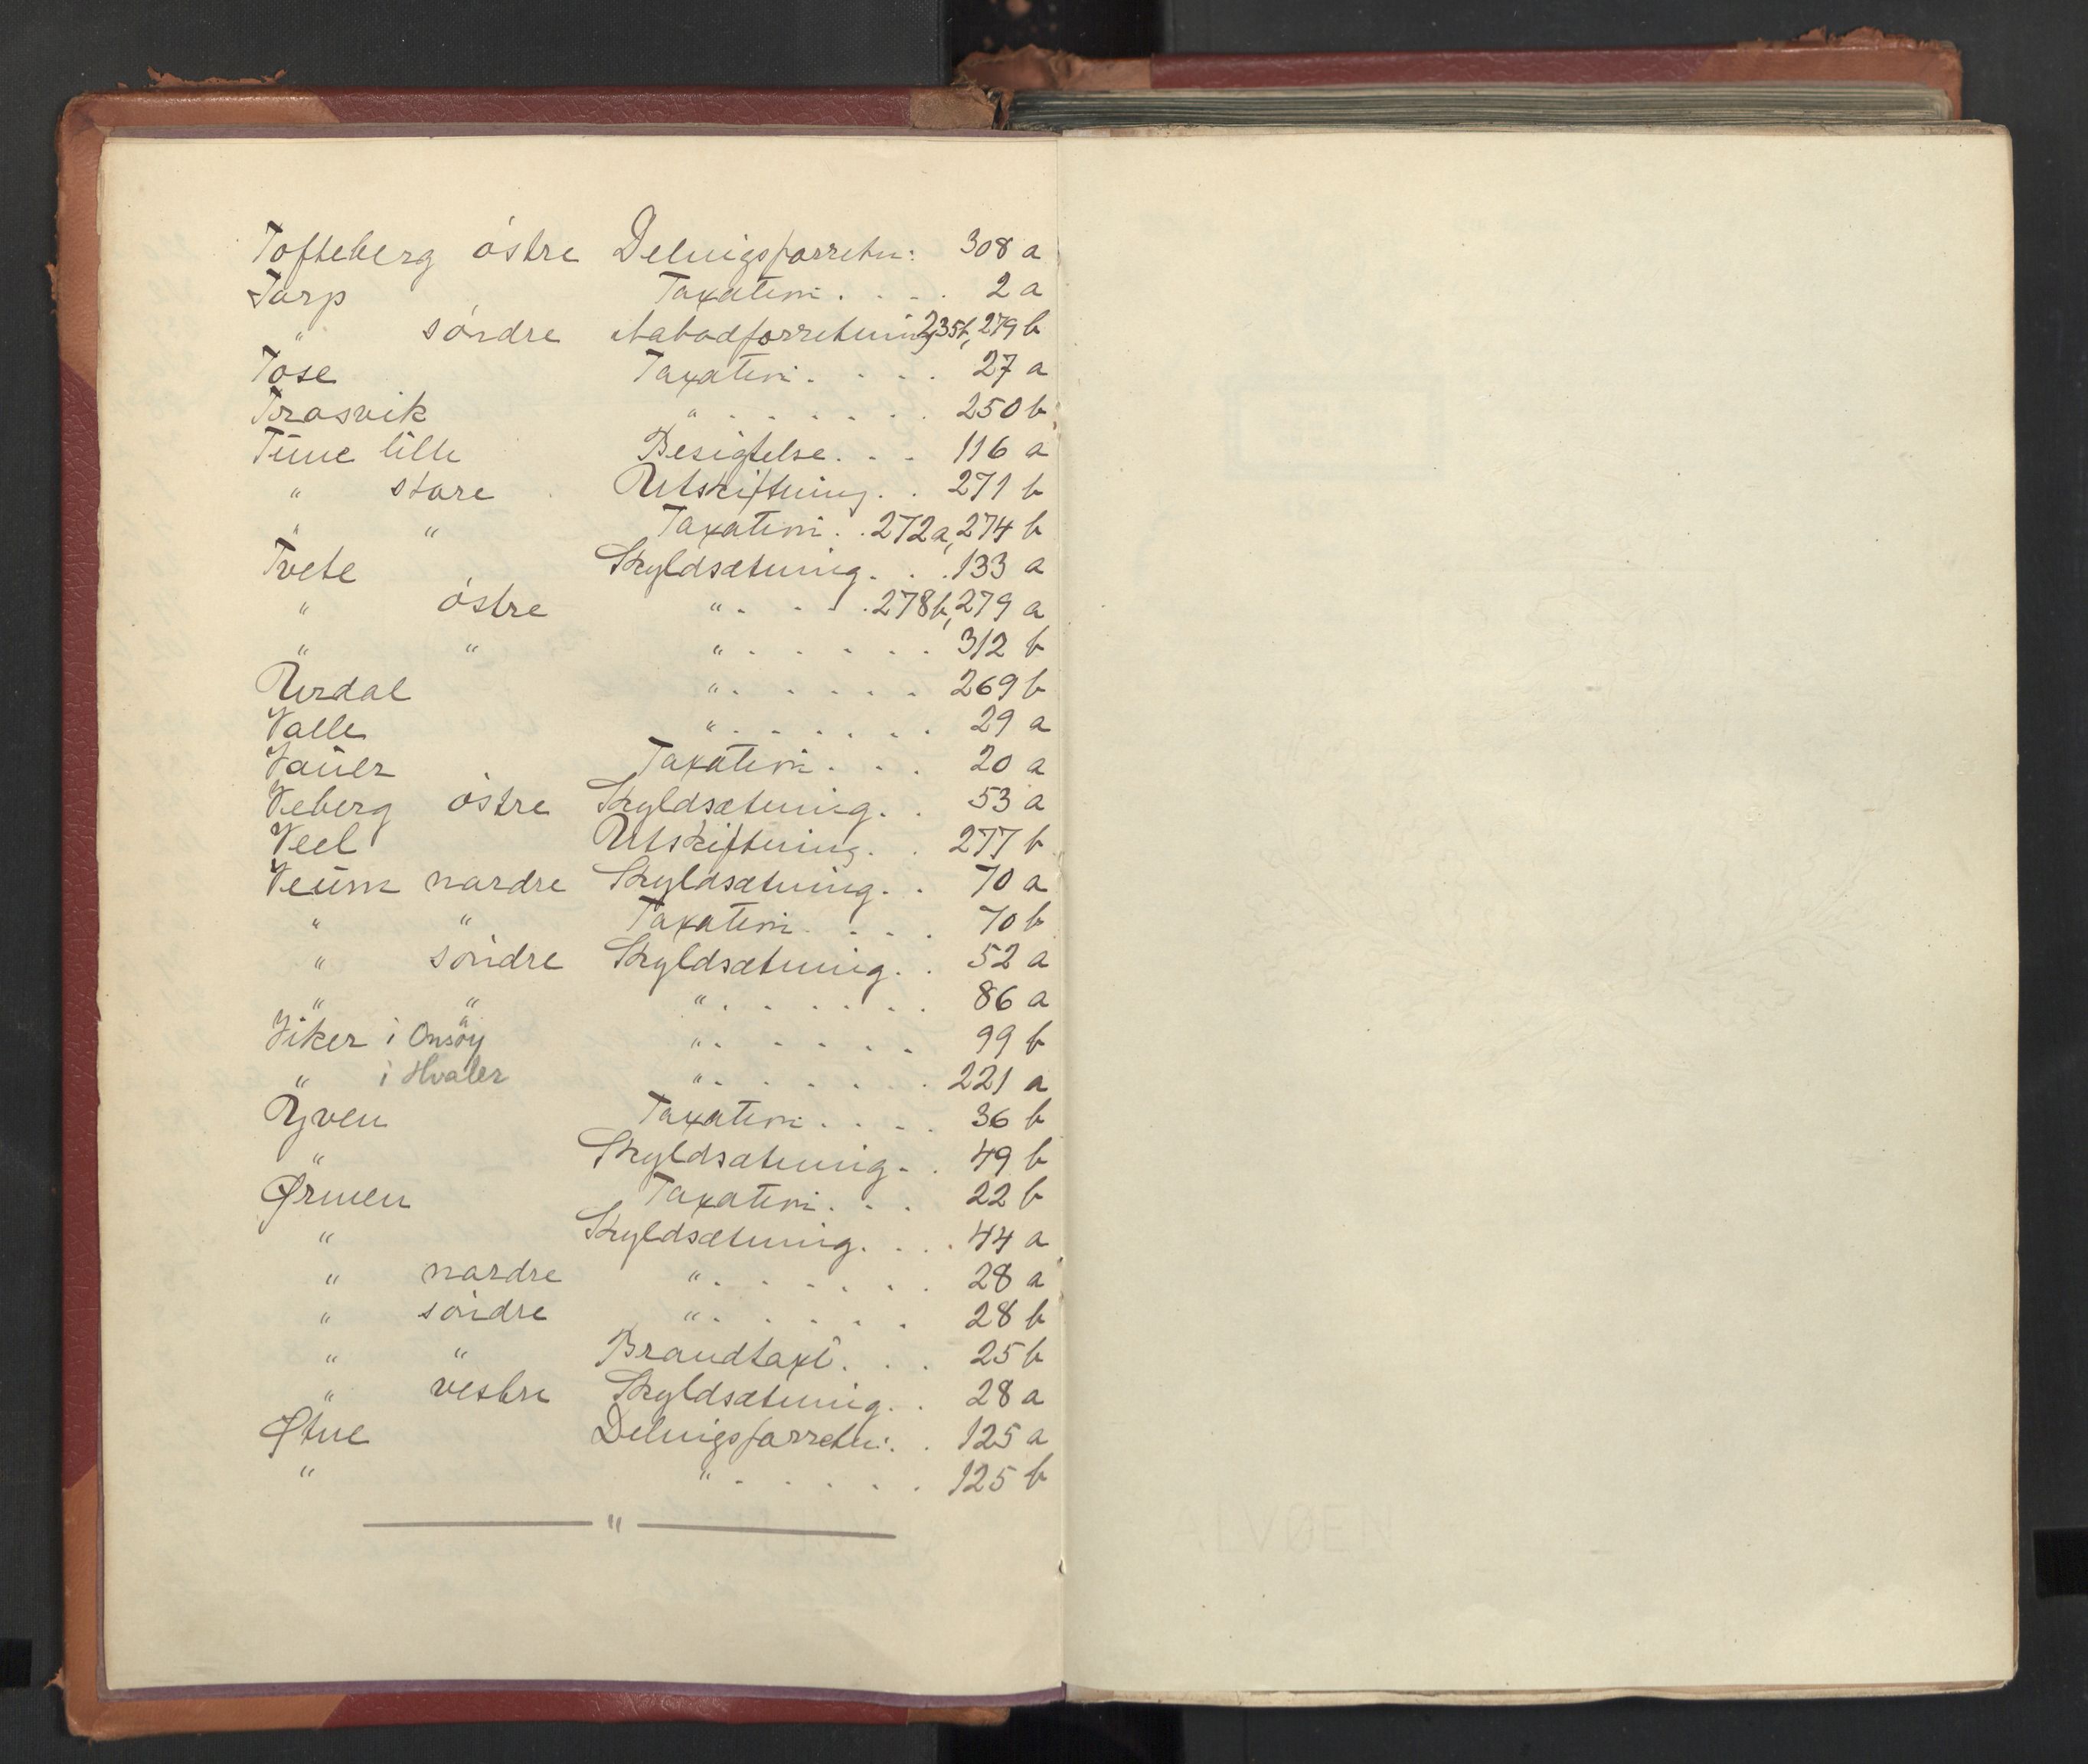 Tofteberg östre Delningsforretn: 308 a
Torp Taxation . . . . 2 a
" söndre Aabodforretning 235b, 279 b
Tose Taxation . . . . 27 a
Trosvik " . . . . . . 250 b
Tune lille Besigtelse . . . 116 a
" store Utskiftning . . 271 b
" " Taxation . . 272a, 274 b
Tvete Skyldsætning . . . 133 a
" östre " . . . . 278b, 279 a
" " " . . . . . . 312 b
Urdal " . . . . . . 269 b
Valle " . . . . . . 29 a
Vauer Taxation . . . 20 a
Veberg östre Skyldsætning . . 53 a
Veel Utskiftning . . 277 b
Veum nordre Skyldsætning . . 70 a
" " Taxation . . . . 70 b
" söndre Skyldsætning . . 52 a
" " " . . . . . . 86 a
Viker i Onsöy " . . . . . . 99 b
" i Hvaler " . . . . . . 221 a
Yven Taxation . . . . 36 b
" Skyldsætning . . 49 b
Ørmen Taxation . . . 22 b
" Skyldsætning . . . . 44 a
" nordre " . . . . . . 28 a
" söndre " . . . . . . 28 b
" " Brandtaxt . . . 25 b
" vestre Skyldsætning . . 28 a
Øtne Delningsforretn: . . 125 a
" " . . . . . . 125 b
"
ALVØEN